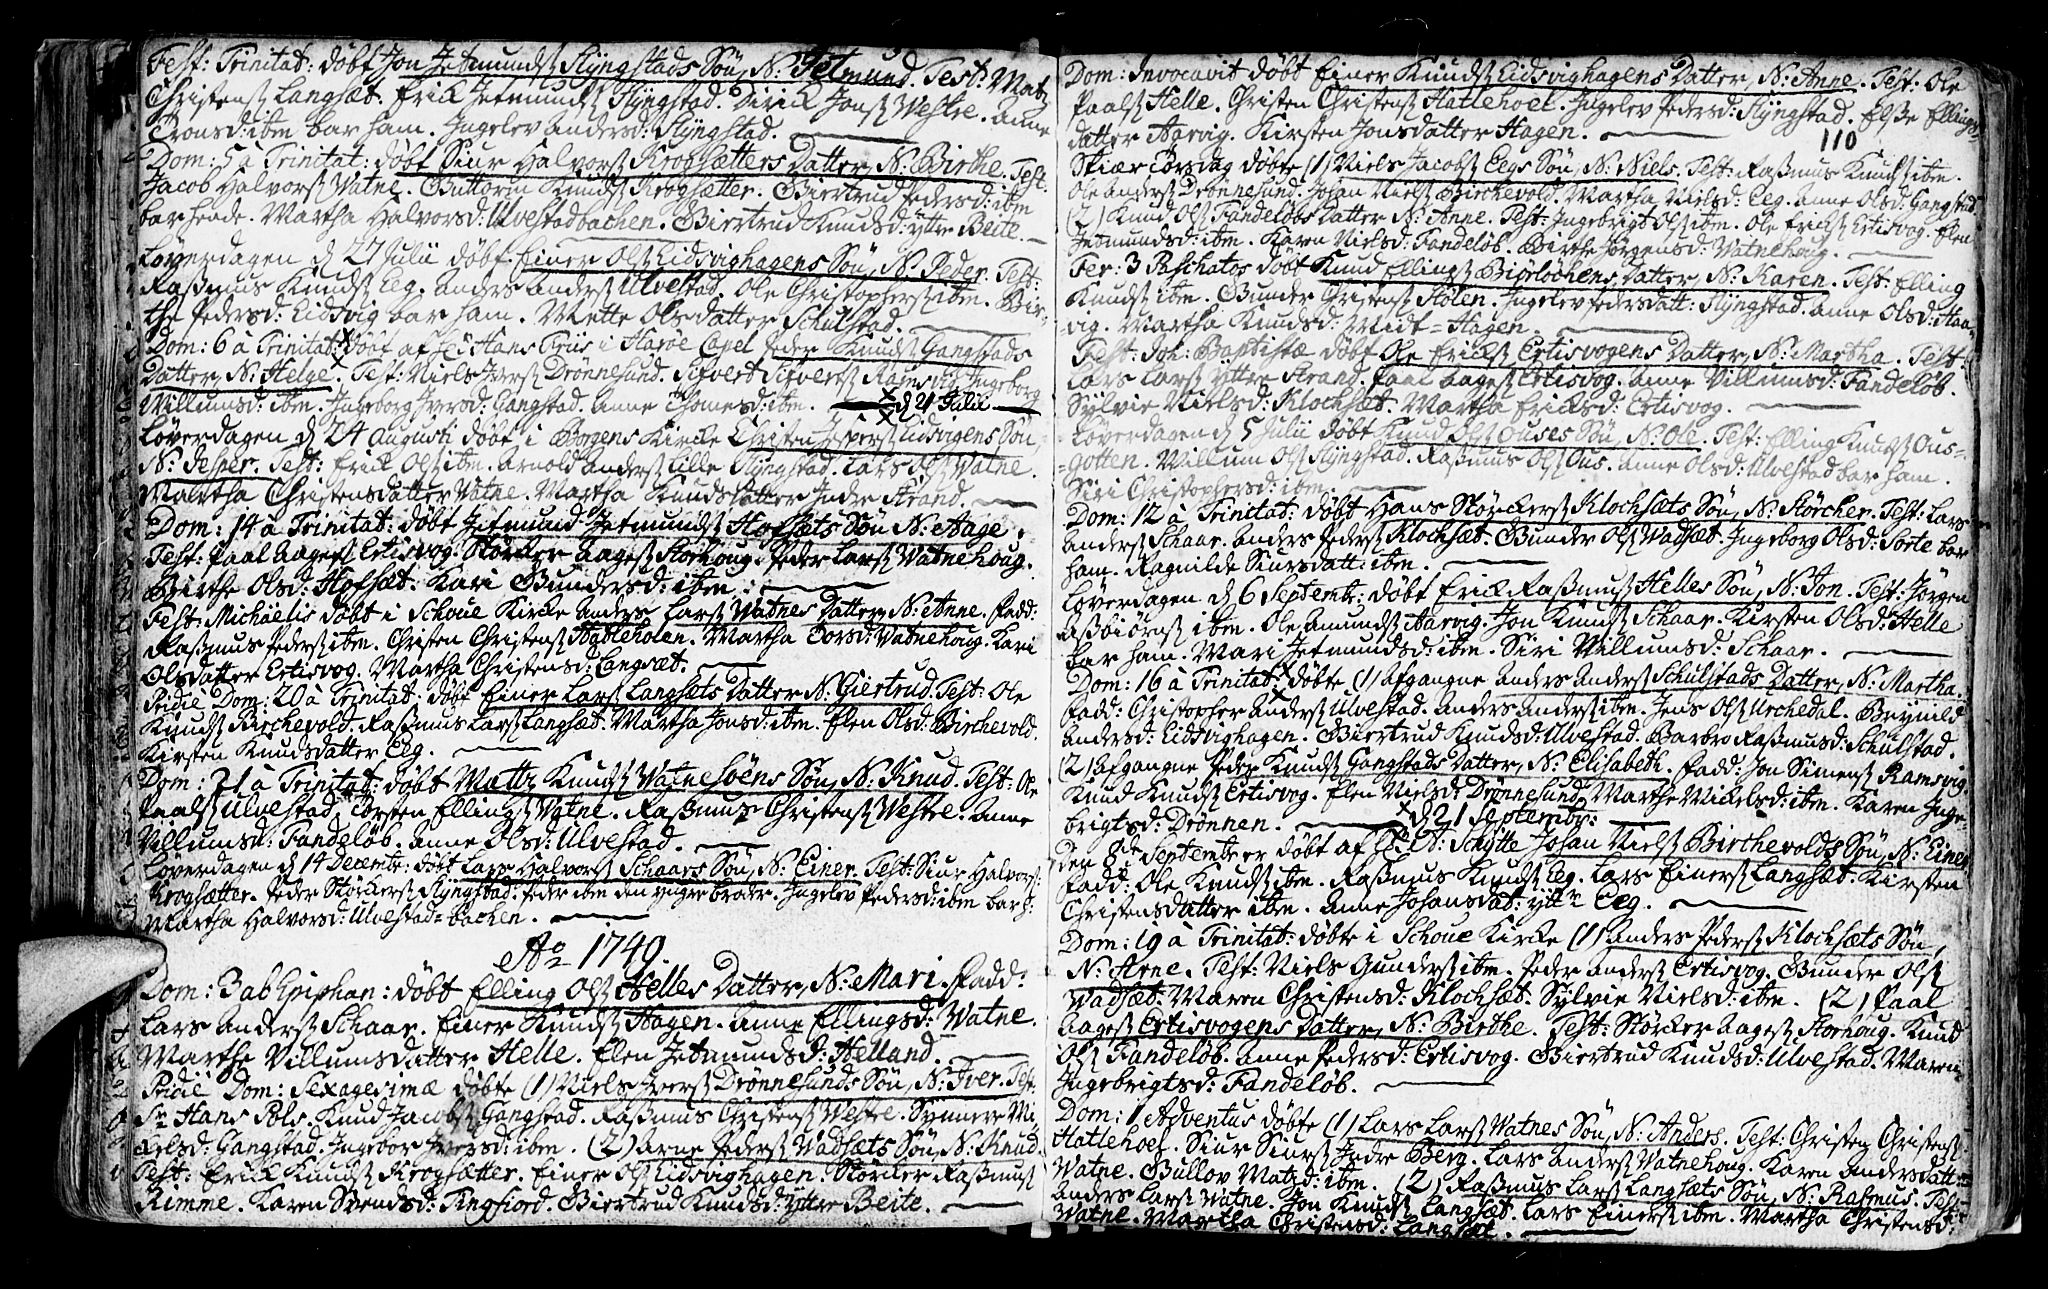 Fest: Trinitat: döbt Jon Jetmundsß Slÿngstads Sön, N: Jetmund. Test: Matz
Christensß Langsæt. Erick Jetmundsß Slÿngstad. Dirick Jonsß Westre. Anne
Tronsd: ibm bar ham. Ingelev Andersd: Slÿngstad.
Dom: 5 à Trinitat: döbt Siur Halvorsß Krogsætters Datter, N: Birthe. Test:
Jacob Halvorsß Watne. Guttorm Knudsß Krogsætter. Giertrud Pedersd: ibm
bar hende. Martha Halvorsd: Ulvestadbachen. Giertrud Knudsd: ÿttre Beite.
Løverdagen d 27 Julii döbt Einer Olsß Eidsvighagens Sön, N: Peder. Test:
Raßmus Knudsß Eeg. Anders Andersß Ulvestad. Ole Christophersß ibm. Bir-
the Pedersd: Eidsvig bar ham. Mette Olsdatter Schulstad.
Dom: 6 à Trinitat: döbt af Hr Hans Crus i Harøe Capel Peder Knudsß Gangstads
Datter, N: Helge. Test: Niels Iversß Drönnesund. Sifvert Sifvertsß Ramsvig. Ingeborg
Willumsd: ibm. Ingeborg Iversd: Gangstad. Anne Thomesd: ibm. d 21 Julii
Løverdagen d 24 Augusti döbt i Borgens Kirke Christen Jespersß Eidsvigens Sön,
N: Jesper. Test: Erick Olsß ibm. Arnold Andersß Lille Slÿngstad. Lars Olsß Watne.
Martha Christensdatter Watne. Martha Knudsdatter Indre Strand.
Dom: 14 à Trinitat: döbt Jetmund Jetmundsß Hofsæts Sön N: Aage.
Test: Paal Aagesß Ertisvog. Störker Aagesß Storhoug. Peder Larsß Watnehoug.
Birthe Olsd: Hofsæt. Kari Gundersd: ibm.
Fest: Michaëlis döbt i Schoue Kirke Anders Larsß Watnes Datter, N: Anne. Fadd:
Raßmus Pedersß ibm. Christen Christensß Hatleholen. Martha Corsd: Watnehoug. Kari
Olsdatter Ertisvog. Martha Christensd: Langsæt.
Pridie Dom: 20 à Trinitat: döbt Einer Larsß Langsæts Datter N: Giertrud. Test: Ole
Knudsß Birchevold. Raßmus Larsß Langsæt. Martha Jonsd: ibm. Elen Olsd: Birchevold.
Kirsten Knudsdatter Eeg.
Dom: 21 à Trinitat: döbt Mattz Knudsß Watnesøens Sön, N: Knud. Test: Ole
Paalsß Ulvestad. Torsten Ellingsß Watne. Raßmus Christensß Westre. Anne
Villumsd: Fandelöb. Anne Olsd: Ulvestad.
Løverdagen d 14 Decembr: döbt Lars Halvorsß Schaars Sön, N: Einer. Test: Siur Halvorsß
Krogsætter. Peder Störkersß Slÿngstad. Peder ibm den yngre broder. Ingelev Pedersd: ibm bar h:
Martha Halvorsd: Ulvestad=bachen.
Ao 1749.
Dom: 3 ab Epiphan: döbt Elling Olsß Helles Datter, N: Mari. Fadd:
Lars Andersß Schaar. Einer Knudsß Hagen. Anne Ellingsd: Watne.
Marthe Villumsdatter Helle. Elen Jetmundsd: Helland.
Pridie Dom: Sexagesimæ döbte (1) Niels Iversß Drönnesunds Sön, N: Iver. Test:
Sr Hans Pols. Knud Jacobsß Gangstad. Raßmus Christensß Westre. Synnere Mi-
kelsd: Gangstad. Ingebor Iversd: ibm. (2) Arne Pedersß Vadsæts Sön, N: Knud.
Test: Erick Knudsß Krogsætter. Einer Olsß Eidsvighagen. Störker Raßmusß
Rimme. Karen Svendsd: Tingfiord. Giertrud Knudsd: Yttre Beite.
Dom: Invocavit döbt Einer Knudsß Eidsvighagens Datter, N: Anne. Test: Ole
Paalsß Helle. Christen Christensß Hatlehoel. Ingelev Pedersd: Slÿngstad. Elsße Ellings-
datter Aarvig. Kirsten Jonsdatter Hagen.
110
Skiær Torsdag döbte (1) Niels Jacobsß Eegs Sön, N: Niels. Test: Raßmus Knudsß ibm.
Ole Andersß Drönnesund. Johan Nielsß Birchevold. Martha Nielsd: Eeg. Anne Olsd: Gangstad.
(2) Knud Olsß Fandelöbs Datter N: Anne. Test: Ingebrigt Olsß ibm. Ole Ericksß Ertisvog. Elen
Jetmundsd: ibm. Karen Nielsd: Fandelöb. Birthe Jörgensd: Watnehoug.
Fer: 3 Paschatos döbt Knud Ellingsß Bierlochens Datter, N: Karen. Test: Elling
Knudsß ibm. Gunder Christensß Stölen. Ingelev Pedersdatt: Slÿngstad. Anne Olsd: Haa-
vig. Martha Knudsd: Midt=Hagen.
Fest: Joh: Baptistæ döbt Ole Ericksß Ertisvogens Datter, N: Martha. Test:
Lars Larsß Yttre Strand. Paal Aagesß Ertisvog. Anne Villumsd: Fandelöb.
Sÿlvie Nielsd: Klochsæt. Martha Ericksd: Ertisvog.
Løverdagen d 5 Julii döbt Knud Olsß Ouses Sön, N: Ole. Test: Elling Knudsß Ous-
=Gotten. Willum Olsß Slÿngstad. Raßmus Olsß Ous. Anne Olsd: Ulvestad bar ham.
Siri Christophersd: ibm.
Dom: 12 à Trinitat: döbt Hans Störckersß Klochsæts Sön, N: Störcher. Test: Lars
Andersß Schaar. Anders Pedersß Klochsæt. Gunder Olsß Wadsæt. Ingeborg Olsd: Sorte bar
ham. Ragnilde Siursdatt: ibm.
Løverdagen d 6 Septembr: döbt Erick Raßmusß Helles Sön, N: Jon. Test: Jörgen
Asbiörnsß ibm. Ole Amundsß Aarvig. Jon Knudsß Schaar. Kirsten Olsd: Helle
bar ham. Mari Jetmundsd: ibm. Siri Willumsd: Schaar.
Dom: 16 à Trinitat: döbte (1) Afgangne Anders Andersß Schulstads Datter, N: Martha.
Fadd: Christopher Andersß Ulvestad. Anders Andersß ibm. Jens Olsß Urchedal. Brynild
Andersd: Eidsvighagen. Giertrud Knudsd: Ulvestad. Barbro Raßmusd: Schulstad.
(2) Afgangne Peder Knudsß Gangstads Datter, N: Elisabeth. Fadd: Jon Simensß Ramsvig.
Knud Knudsß Ertisvog. Elen Nielsd: Drönnesund. Marthe Mickelsd: ibm. Karen Inge-
brigtsd: Drönnen. d 21 Septembr:
den 8de Septembr er döbt af Hr N: Schÿtte Johan Nielsß Birchevolds Sön, N: Einer
Fadd: Ole Knudsß ibm. Raßmus Knudsß Eeg. Lars Einersß Langsæt. Kirsten
Christensdatter ibm. Anne Johansdat: ÿttre Eeg.
Dom: 19 à Trinitat: döbte i Schoue Kirke (1) Anders Pedersß Klochsæts Sön,
N: Arne. Test: Niels Gundersß ibm. Peder Andersß Ertisvog. Gunder Olsß
Vadsæt. Maren Christensd: Klochsæt. Sÿlvie Nielsd: ibm. (2) Paal
Aagesß Ertisvogens Datter, N: Birthe. Test: Störker Aagesß Storhoug. Knud
Olsß Fandelöb. Anne Pedersd: Ertisvog. Giertrud Knudsd: Ulvestad. Maren
Ingebrigtsd: Fandelöb.
Dom: 1 Adventus döbte (1) Lars Larsß Watnes Sön, N: Anders. Test: Christen Christensß
Hatlehoel. Siur Siursß Indre Berg. Lars Andersß Watnehoug. Karen Andersdatt:
Watne. Gullov Matzd: ibm. (2) Raßmus Larsß Langsæts Sön, N: Rasmus. Test:
Anders Larsß Watne. Jon Knudsß Langsæt. Lars Einersß ibm. Martha Christensd:
Watne. Martha Christensd: Langsæt.